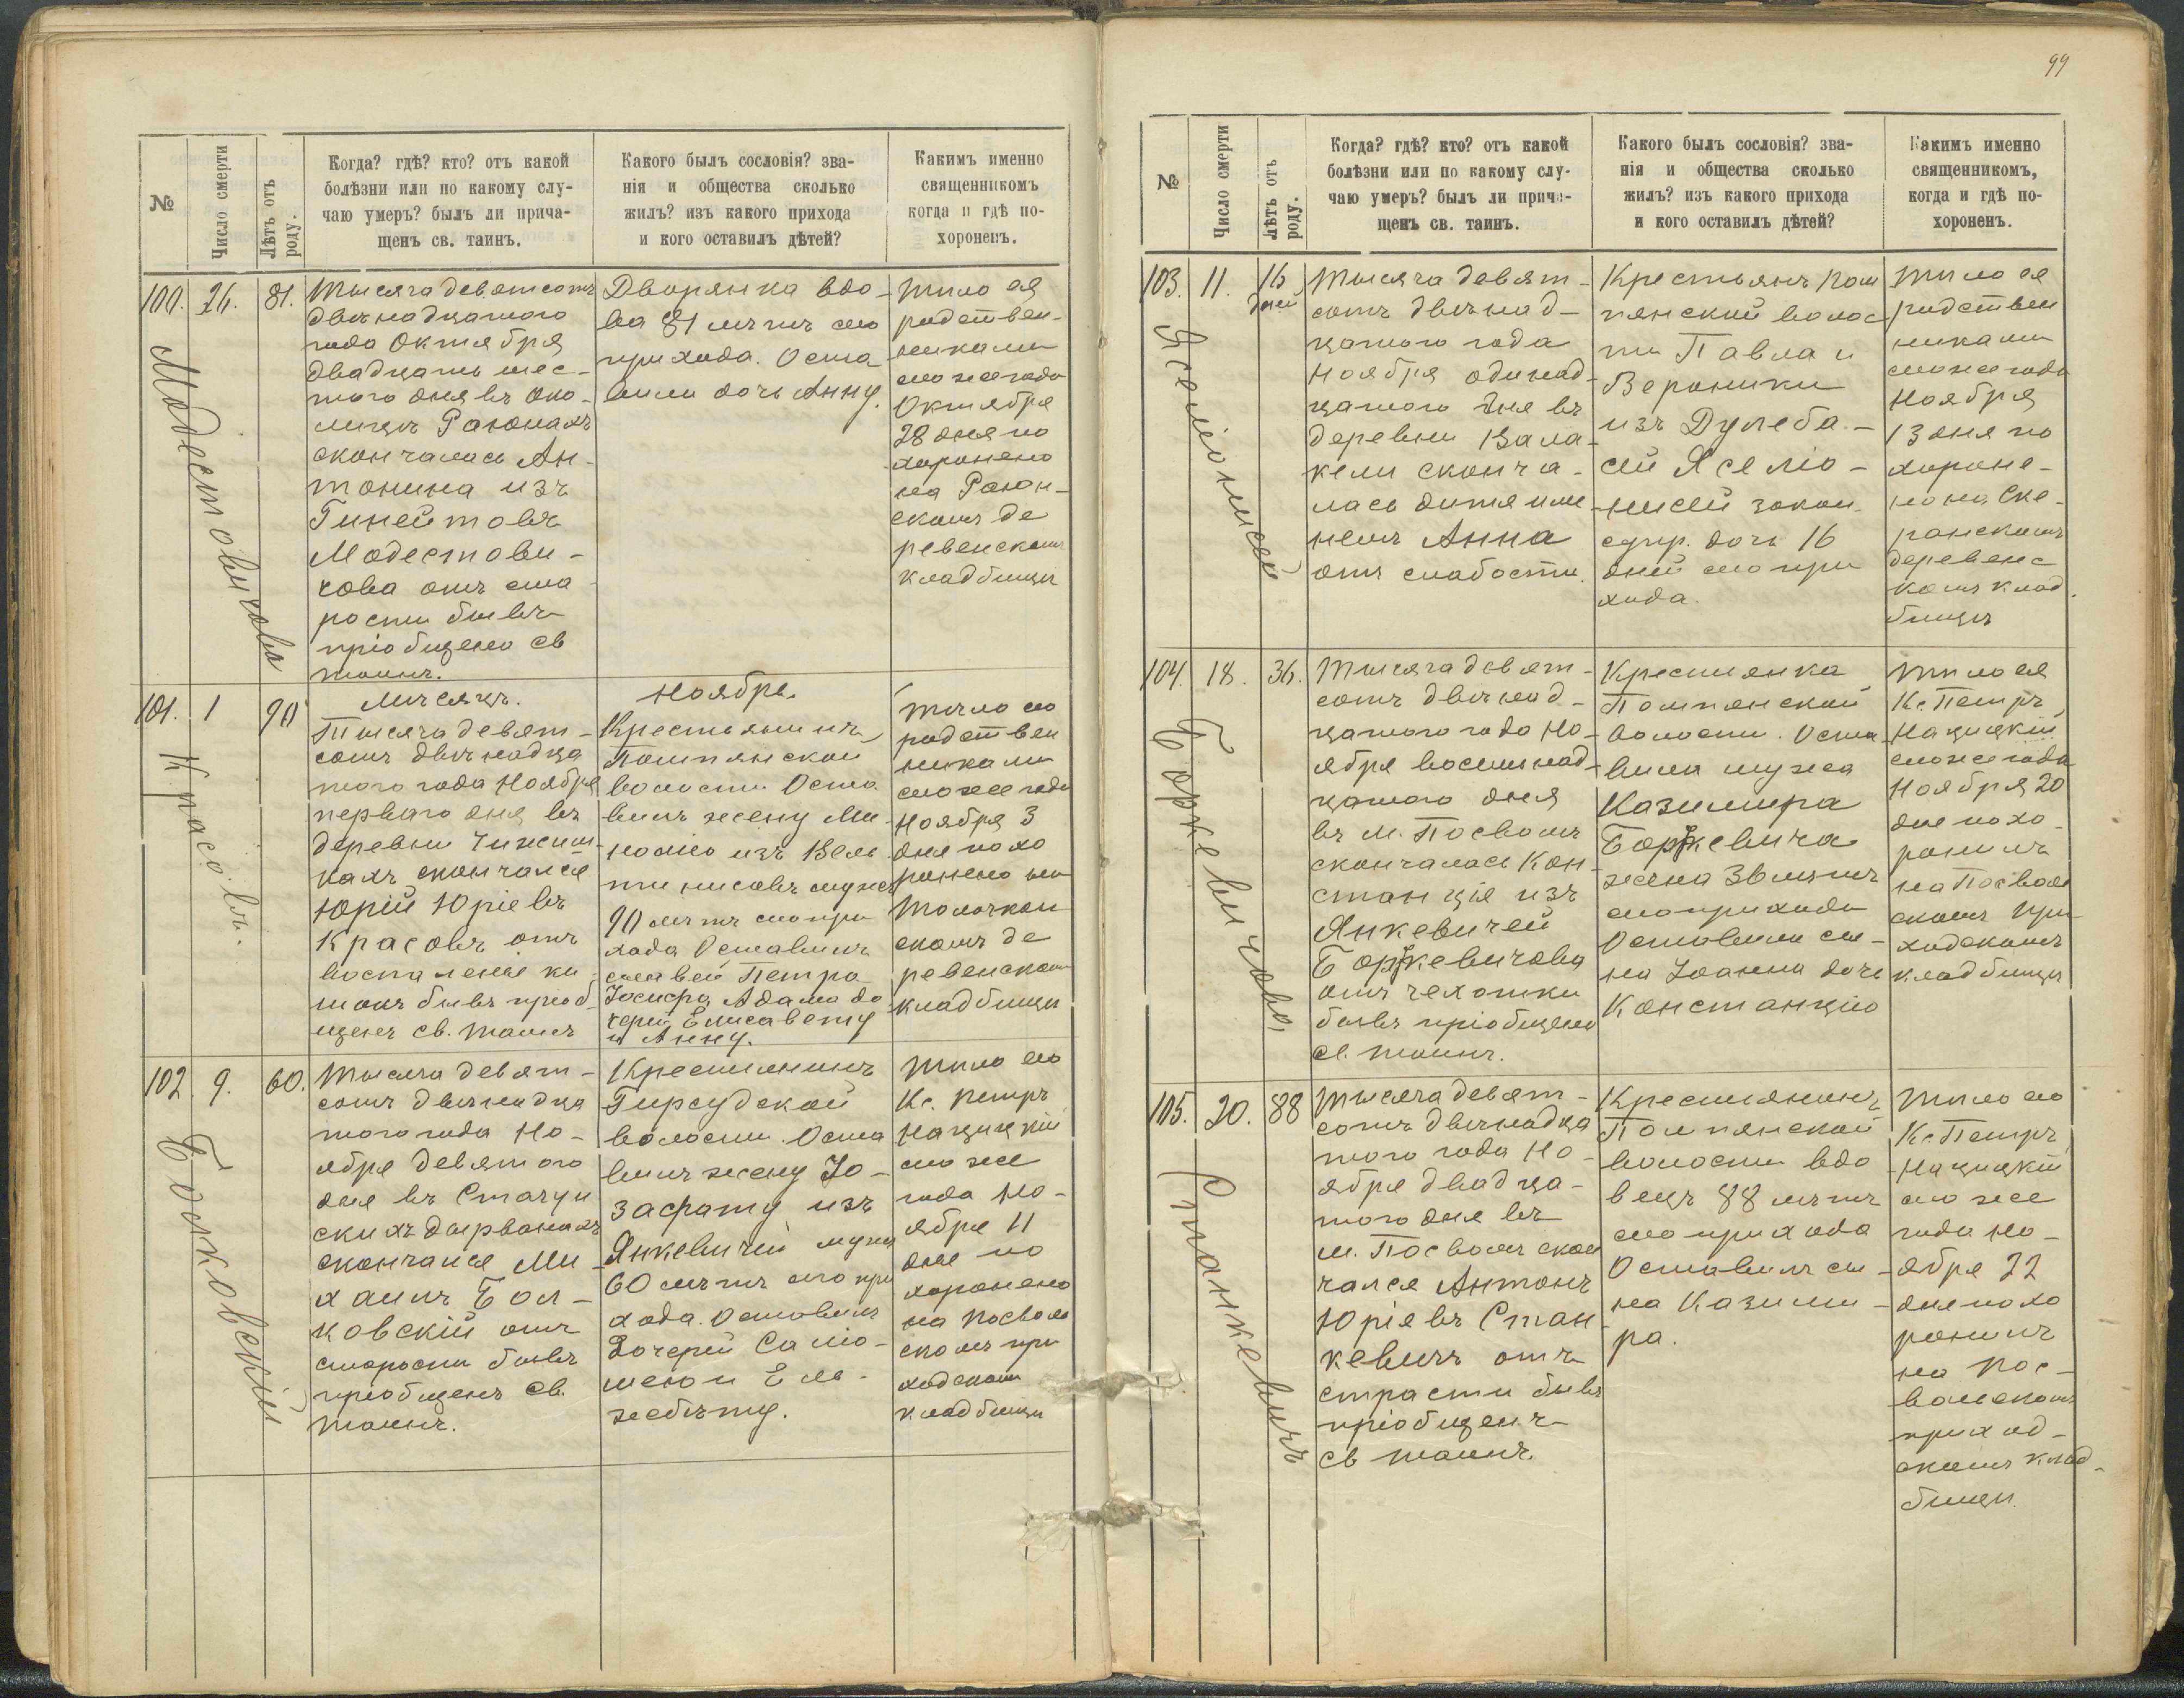 99
№
Число смерти
Лѣтъ отъ роду.
Когда? гдѣ? кто? отъ какой
болѣзни или по какому слу-
чаю умеръ? былъ ли прича-
щенъ св. таинъ.
Какого былъ сословія? зва-
нія и общества сколько
жилъ? изъ какого прихода
и кого оставилъ дѣтей?
Какимъ именно
священникомъ
когда и гдѣ по-
хороненъ.
100. 26. 81.
Модестовичова
Тысяча девятсотъ
двѣнадцатого
года Октября
двадцать шес-
того дня въ око-
лицѣ Раюнахъ
скончалась Ан-
тонина изъ
Гинейтовъ
Модестови-
чова отъ ста
рости бывъ
пріобщено св
таинъ.
Дворянка вдо-
ва 81 лѣтъ сго
прихода. Оста
вила дочь Анну.
Тѣло ея
родствен-
никами
сгоже года
Октября
28 дня по
хоронено
на Раюн-
скомъ де
ревенскомъ
кладбищѣ
Мѣсяцъ. Ноябрь.
101. 1 90
Красовъ.
Тысяча девят-
сотъ двѣнадца
того года Ноября
перваго дня въ
деревни
кахъ скончался
Юрій Юріевъ
Красовъ отъ
воспаленье ки-
шокъ бывъ пріоб
щенъ св. таинъ
Крестьянинъ
Помпянской
волости Оста
вилъ жену
изъ
90 лѣтъ сго при
хода Оставилъ
сыновей Петра
Іосифа, Адама до
черей Елисавету
и Анну.
Тѣло его
родствен
никами
сгоже года
Ноября 3
дня похо
ронено на
Толочкон
скомъ де
ревенскомъ
кладбищи
102 9. 60.
Болковскій
Тысяча девят-
сотъ двѣнадца
того года Но-
ября девятого
дня въ Стачун
скихъ Дырвонахъ
скончался Ми-
хаилъ Бол-
ковскій отъ
старости бывъ
пріобщенъ св.
таинъ.
Крестьянинъ
Гирсудской
волости. Оста
вилъ жену Іо-
зафату изъ
Янкевичей мужъ
60 лѣтъ сго при
хода. Оставилъ
Дочерей Сало-
мею и Ель-
жбѣту.
Тѣло его
Кс. Петръ
Нацицкій
сгоже
года Но-
ября 11
дня по
хоронено
на Посволь
скомъ при
ходскомъ
кладбищи
№
Число смерти
Лѣтъ отъ роду.
Когда? гдѣ? кто? отъ какой
болѣзни или по какому слу-
чаю умеръ? былъ ли прича-
щенъ св. таинъ.
Какого былъ сословія? зва-
нія и общества сколько
жилъ? изъ какого прихода
и кого оставилъ дѣтей?
Какимъ именно
священникомъ,
когда и гдѣ по-
хороненъ.
103. 11. 16 дней
Яселіонисей
Тысяча девят-
сотъ двѣнад-
цатого года
Ноября одинад-
цатого дня въ
деревни Вала-
кели сконча-
лась дитя име
немъ Анна
отъ слабости.
Крестьянъ Пом
пянской волос
ти Павла и
Вероники
изъ Дулеба-
сей Яселіо-
нисей закон.
супр. дочь 16
дней сго при
хода.
Тѣло ея
родствен
никами
сгоже года
Ноября
13 дня по
хороне-
но на Ске-
ранскомъ
деревенс
комъ клад
бищѣ
104. 18. 36.
Боржевичова
Тысяча девят-
сотъ двѣнад-
цатого года Но-
ября восемнад-
цатого дня
въ м. Посволѣ
скончалась Кон
станція изъ
Янкевичей
Боржевичова
отъ чехотки
бывъ пріобщено
св. таинъ.
Крестьянка
Помпянской
волости. Оста
вила мужа
Казимира
Боржевича
жена 36 лѣтъ
сго прихода
Оставила сы-
на Іоанна дочь
Констанцію
Тѣло ея
Кс. Петръ
Нацицкій
сгоже года
Ноября 20
дня похо-
ронилъ
на Посволь
скомъ при
ходскомъ
кладбищи
105. 20. 88
Станкевичъ
Тысяча девят-
сотъ двѣнадца
того года Но-
ября двадца-
того дня въ
м. Посволѣ скон
чался Антонъ
Юріевъ Стан
кевичъ отъ
страсти бывъ
пріобщенъ
св таинъ
Крестьянинъ
Помпянской
волости вдо
вецъ 88 лѣтъ
сго прихода
Оставилъ сы-
на Казими-
ра.
Тѣло его
Кс. Петръ
Нацицкій
сгоже
года Но-
ября 22
дня похо
ронилъ
на Пос-
вольскомъ
приход-
скомъ клад-
бищи.